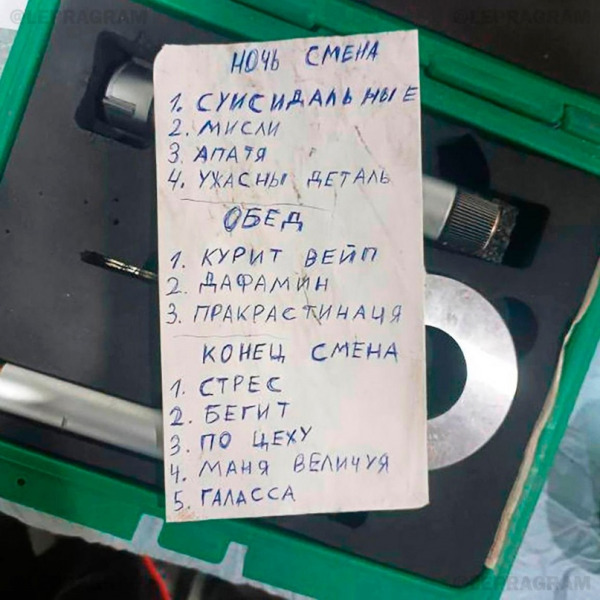 @LEPRAGRAM
@LEPRAGRAM
НОЧЬ СМЕНА
1. СУИСИДАЛЬНЫЕ
2. МИСЛИ
3. АПАТЯ
4. УЖАСНЫ ДЕТАЛЬ
ОБЕД
1. КУРИТ ВЕЙП
2. ДАФАМИН
3. ПРАКРАСТИНАЦЯ
КОНЕЦ СМЕНА
1. СТРЕС
2. БЕГИТ
3. ПО ЦЕХУ
4. МАНЯ ВЕЛИЧУЯ
5. ГАЛАССА
@LEPRAGRAM